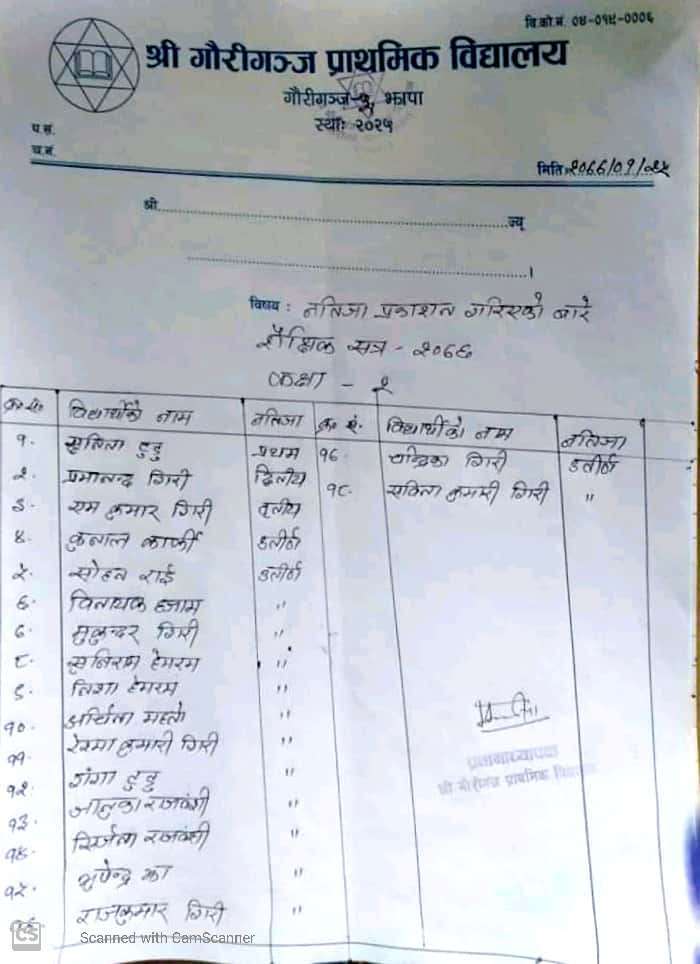 वि.को.नं. ०४-०१५-०००६
श्री गौरीगञ्ज प्राथमिक विद्यालय
गौरीगञ्ज-५, झापा
स्था: २०२५
प.सं.
च.नं.
मिति २०६६/०१/२५
श्री..........ज्यू
..........।
विषय : नतिजा प्रकाशन गरिएको बारे
शैक्षिक सत्र - २०६६
कक्षा - २
क्र.सं. विद्यार्थीको नाम नतिजा क्र.सं. विद्यार्थीको नाम नतिजा
१. टुडु प्रथम १७. चन्द्रिका गिरी उत्तीर्ण
२. प्रमानन्द गिरी द्वितीय १८. सविता कुमारी गिरी "
३. राम कुमार गिरी तृतीय
४. कुनाल कार्की उत्तीर्ण
५. सोहन राई उत्तीर्ण
६. विनायक हजाम "
७. मुकुन्दर गिरी "
८. सुनिराम हेमरम "
९. हेमरम "
१०. महतो "
११. रेश्मा कुमारी गिरी "
१२. गंगा टुडु "
१३. राजवंशी "
१४. राजवंशी "
१५. भुपेन्द्र झा "
१६. राजकुमार गिरी "
श्री गौरीगंज प्राथमिक
CS
Scanned with CamScanner